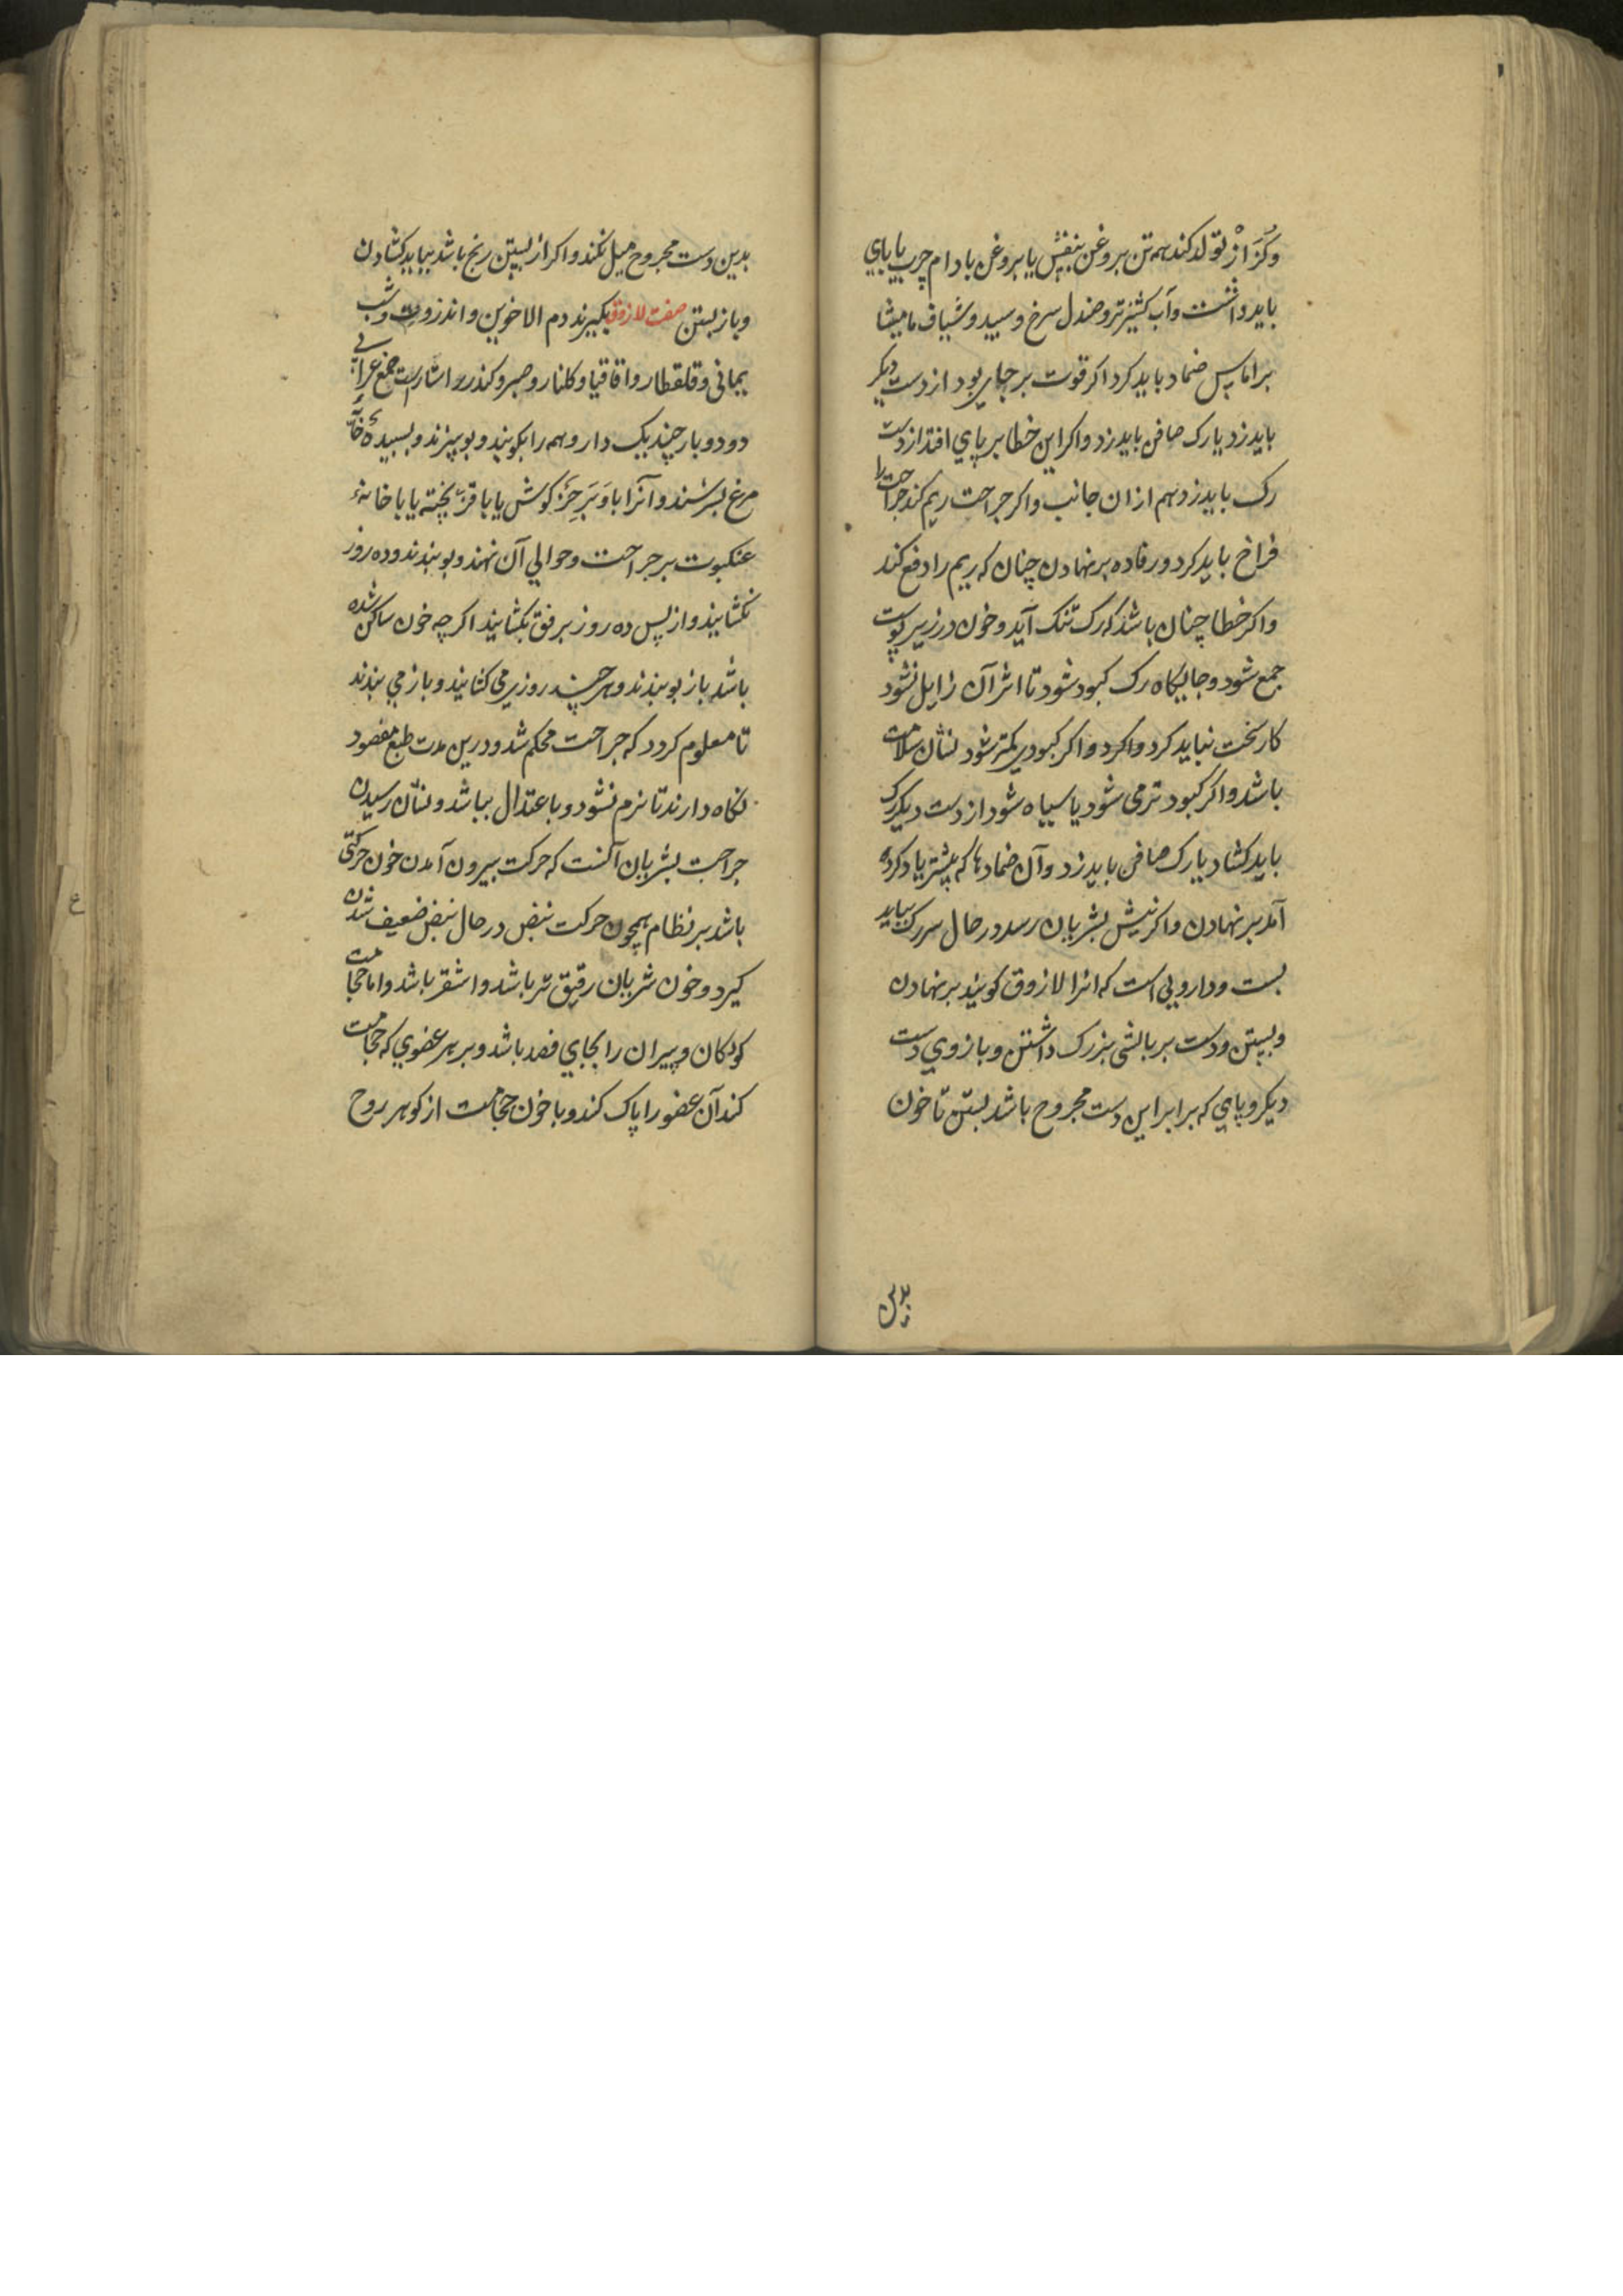 وکزاز تولد کند همه تن بروغن بنفش یا بروغن بادام چرب یابای
باید داشت و آب کشنیز تر و صندل سرخ و سپید و شیاف مامیثا
بر اماس ضماد باید کرد اکر قوت بر جای بود از دست دیکر
باید زد یا رک صافن باید زد و اکر این خطا بر پای افتد از دست
رک باید زد هم ازان جانب و اکر جراحت ریم کند جراحت را
فراخ باید کرد و رفاده بر نهادن چنان که ریم را دفع کند
و اکر خطا چنان باشد که رک تنک آید و خون در زیر پوست
جمع شود و جایکاه رک کبود شود تا اثر آن زایل نشود
کار سخت نباید کرد و اکر کبودی کمتر شود نشان سلامت
باشد و اکر کبود تر می شود یا سیاه شود از دست دیکر رک
باید کشاد یا رک صافن باید زد و آن ضمادها که پیشتر یاد کرده
آمد بر نهادن و اکر نیش بشریان رسد در حال سر رک بباید
بست و دارویی است که انرا لازوق کویند بر نهادن
و بستن و دست بر بالشی بزرک داشتن و بازوی دست
دیکر و پای که برابر این دست مجروح باشد بستن تا خون
بدین
بدین دست مجروح میل نکند و اکر از بستن رنج باشد بباید کشادن
و باز بستن صفت لازوق بکیرند دم الاخوین و انزروت و شب
یمانی و قلقطار و اقاقیا و کلنار و صبر و کندر راستاراست صمغ عرابی
دو دو بار چند یک دارو همه را بکوبند و بوپیزند و بسپیدهٔ خایه
مرغ بسرشند و آنرا با وبر خرکوش یا با قز پخته یا با خانهٔ
عنکبوت بر جراحت و حوالی آن نهند و بوبندند و ده روز
نکشایند و از پس ده روز برفق بکشایند اکرچه خون ساکن شده
باشد باز بوبندند و هر چند روزی می کشایند و باز می بندند
تا معلوم کردد که جراحت محکم شد و درین مدت طبع مفصود
نکاه دارند تا نرم نشود و باعتدال بباشد و نشان رسیدن
جراحت بشریان آنست که حرکت بیرون آمدن خون حرکتی
باشد بر نظام همچون حرکت نبض در حال نبض ضعیف شدن
کیرد و خون شریان رقیق تر باشد و اشقر باشد و اما حجامت
کودکان و پیران را بجای فصد باشد و بر هر عضوی که حجامت
کند آن عضو را پاک کند و با خون حجامت از کوهر روح